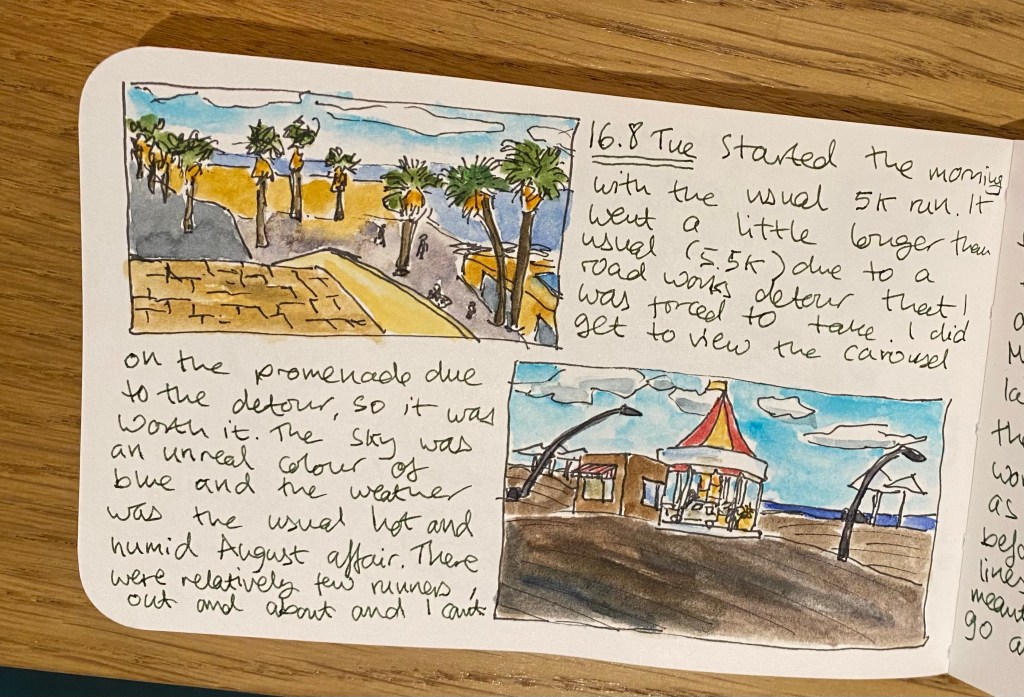 16.8 Tue Started the morning
with the usual 5K run. It
went a little longer than
usual (5.5K) due to a
road works detour that I
was forced to take. I did
get to view the carousel
on the promenade due
to the detour, so it was
worth it. The sky was
an unreal colour of
blue and the weather
was the usual hot and
humid August affair. There
were relatively few runners,
out and about and I can't
M
la
as
lines
meant
go